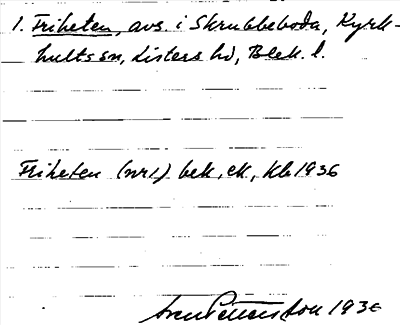 1. Friheten, avs. i Skrubbeboda, Kyrk-
hults sn, Listers hd, Blek. l.
Friheten (nr 1) bek, ek, Kb 1936
Sven Petersson 1936